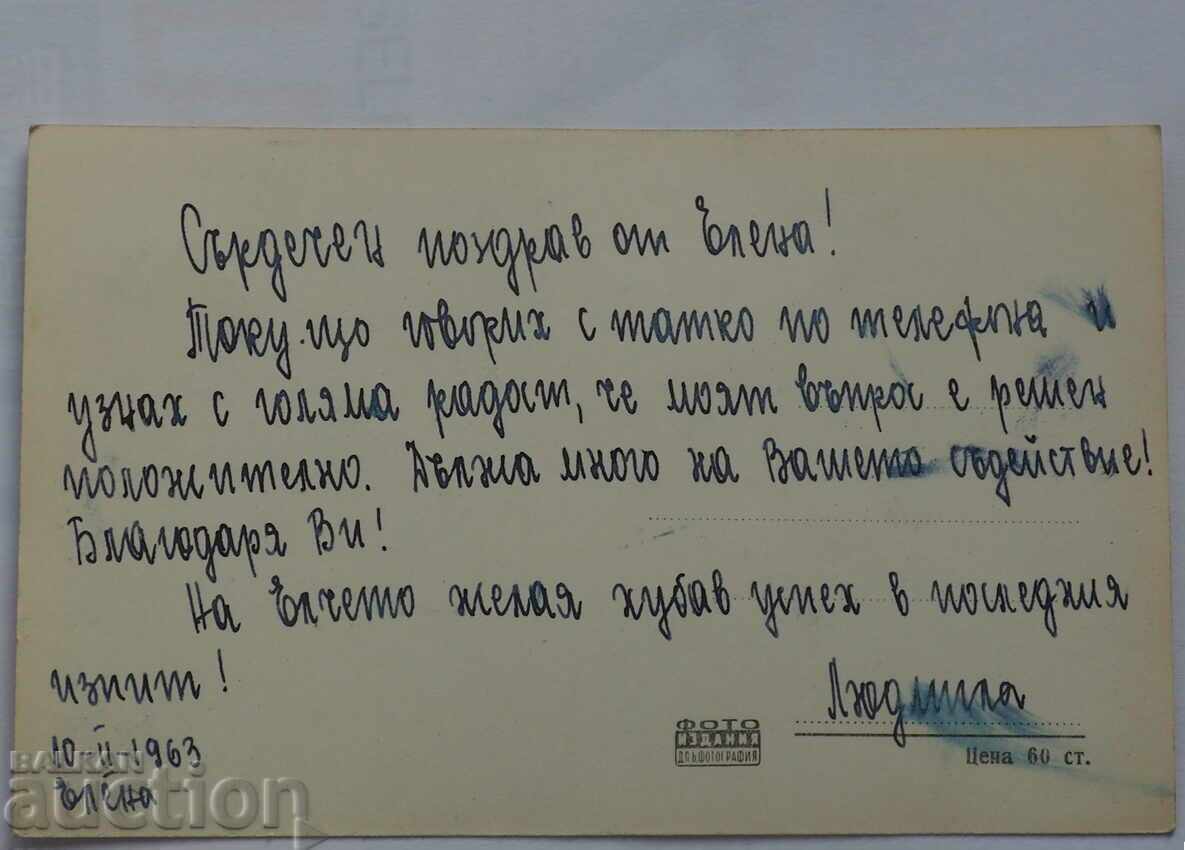 Сърдечен поздрав от Елена!
Току-що говорих с татко по телефона и
узнах с голяма радост, че моят въпрос е решен
положително. Дължа много на Вашето съдействие!
Благодаря Ви!
На Елчето желая хубав успех в последния
изпит!
Людмила
10-II-1963
Елена
ФОТО
ИЗДАНИЯ
ДП„БЪЛГ. ФОТОГРАФИЯ
Цена 60 ст.
BALKAN
auction